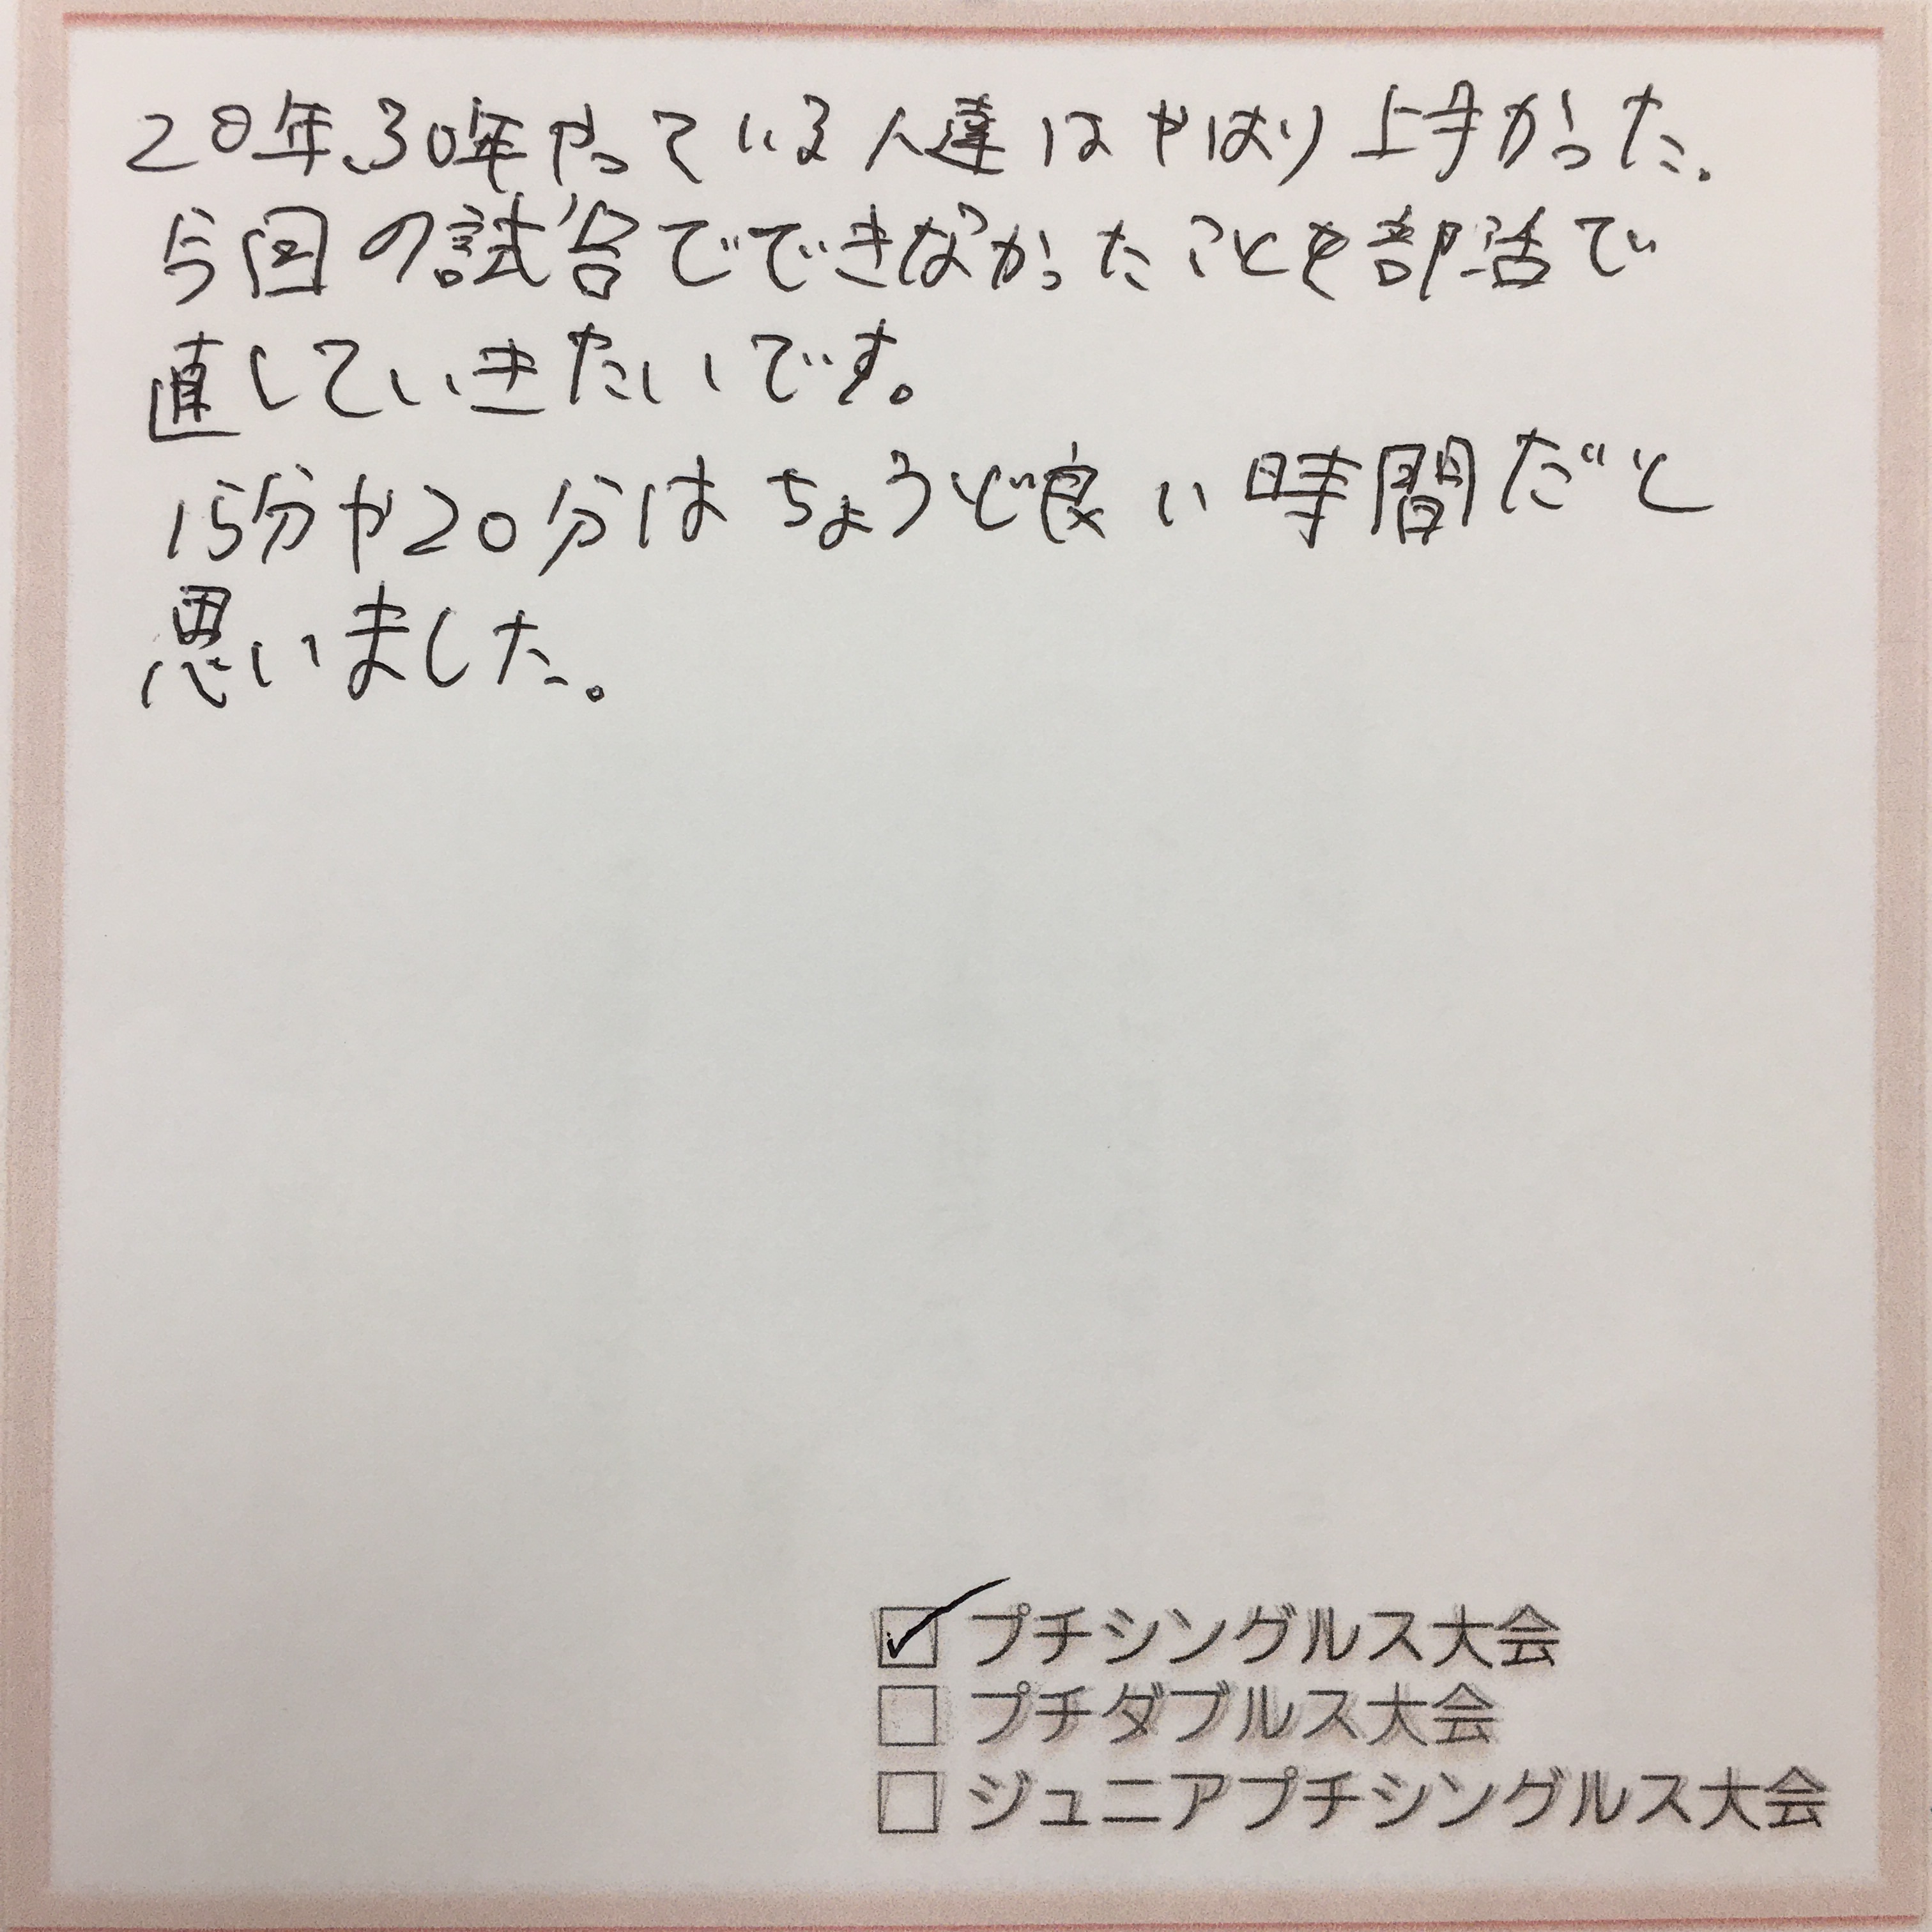 20年、30年やっている人達はやはり上手かった。
今回の試合でできなかったことを部活で
直していきたいです。
15分や20分はちょうど良い時間だと
思いました。
プチシングルス大会
プチダブルス大会
ジュニアプチシングルス大会